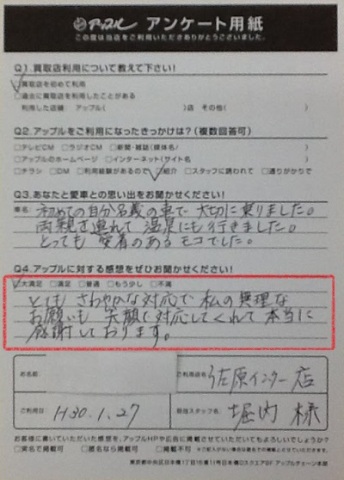 アップル アンケート用紙
この度は当店をご利用いただきありがとうございました。
Q1.買取店利用について教えて下さい!
□買取店を初めて利用
□過去に買取店を利用したことがある
利用した店舗 アップル( )店 その他( )
Q2.アップルをご利用になったきっかけは?(複数回答可)
□テレビCM □ラジオCM □新聞・雑誌(媒体名/ )
□アップルのホームページ □インターネット(サイト名 )
□チラシ □DM □利用経験があるので □紹介 □スタッフに誘われて □通りがかりで
Q3.あなたと愛車との思い出をお聞かせください!
車名
初めての自分名義の車で大切に乗りました。
両親を連れて温泉にも行きました。
とっても愛着のあるモコでした。
Q4.アップルに対する感想をぜひお聞かせください!
□大満足 □満足 □普通 □もう少し □不満
とても さわやかな対応で 私の無理な
お願いも 笑顔で対応してくれて 本当に
感謝しております。
お名前
ご利用店名 佐原インター店
ご利用日 H30.1.27
担当スタッフ名 堀内 様
お客様に書いていただいた感想を、アップルHPや広告に掲載させていただいてもよろしいでしょうか?
□実名で掲載可 □匿名なら掲載可 □掲載不可